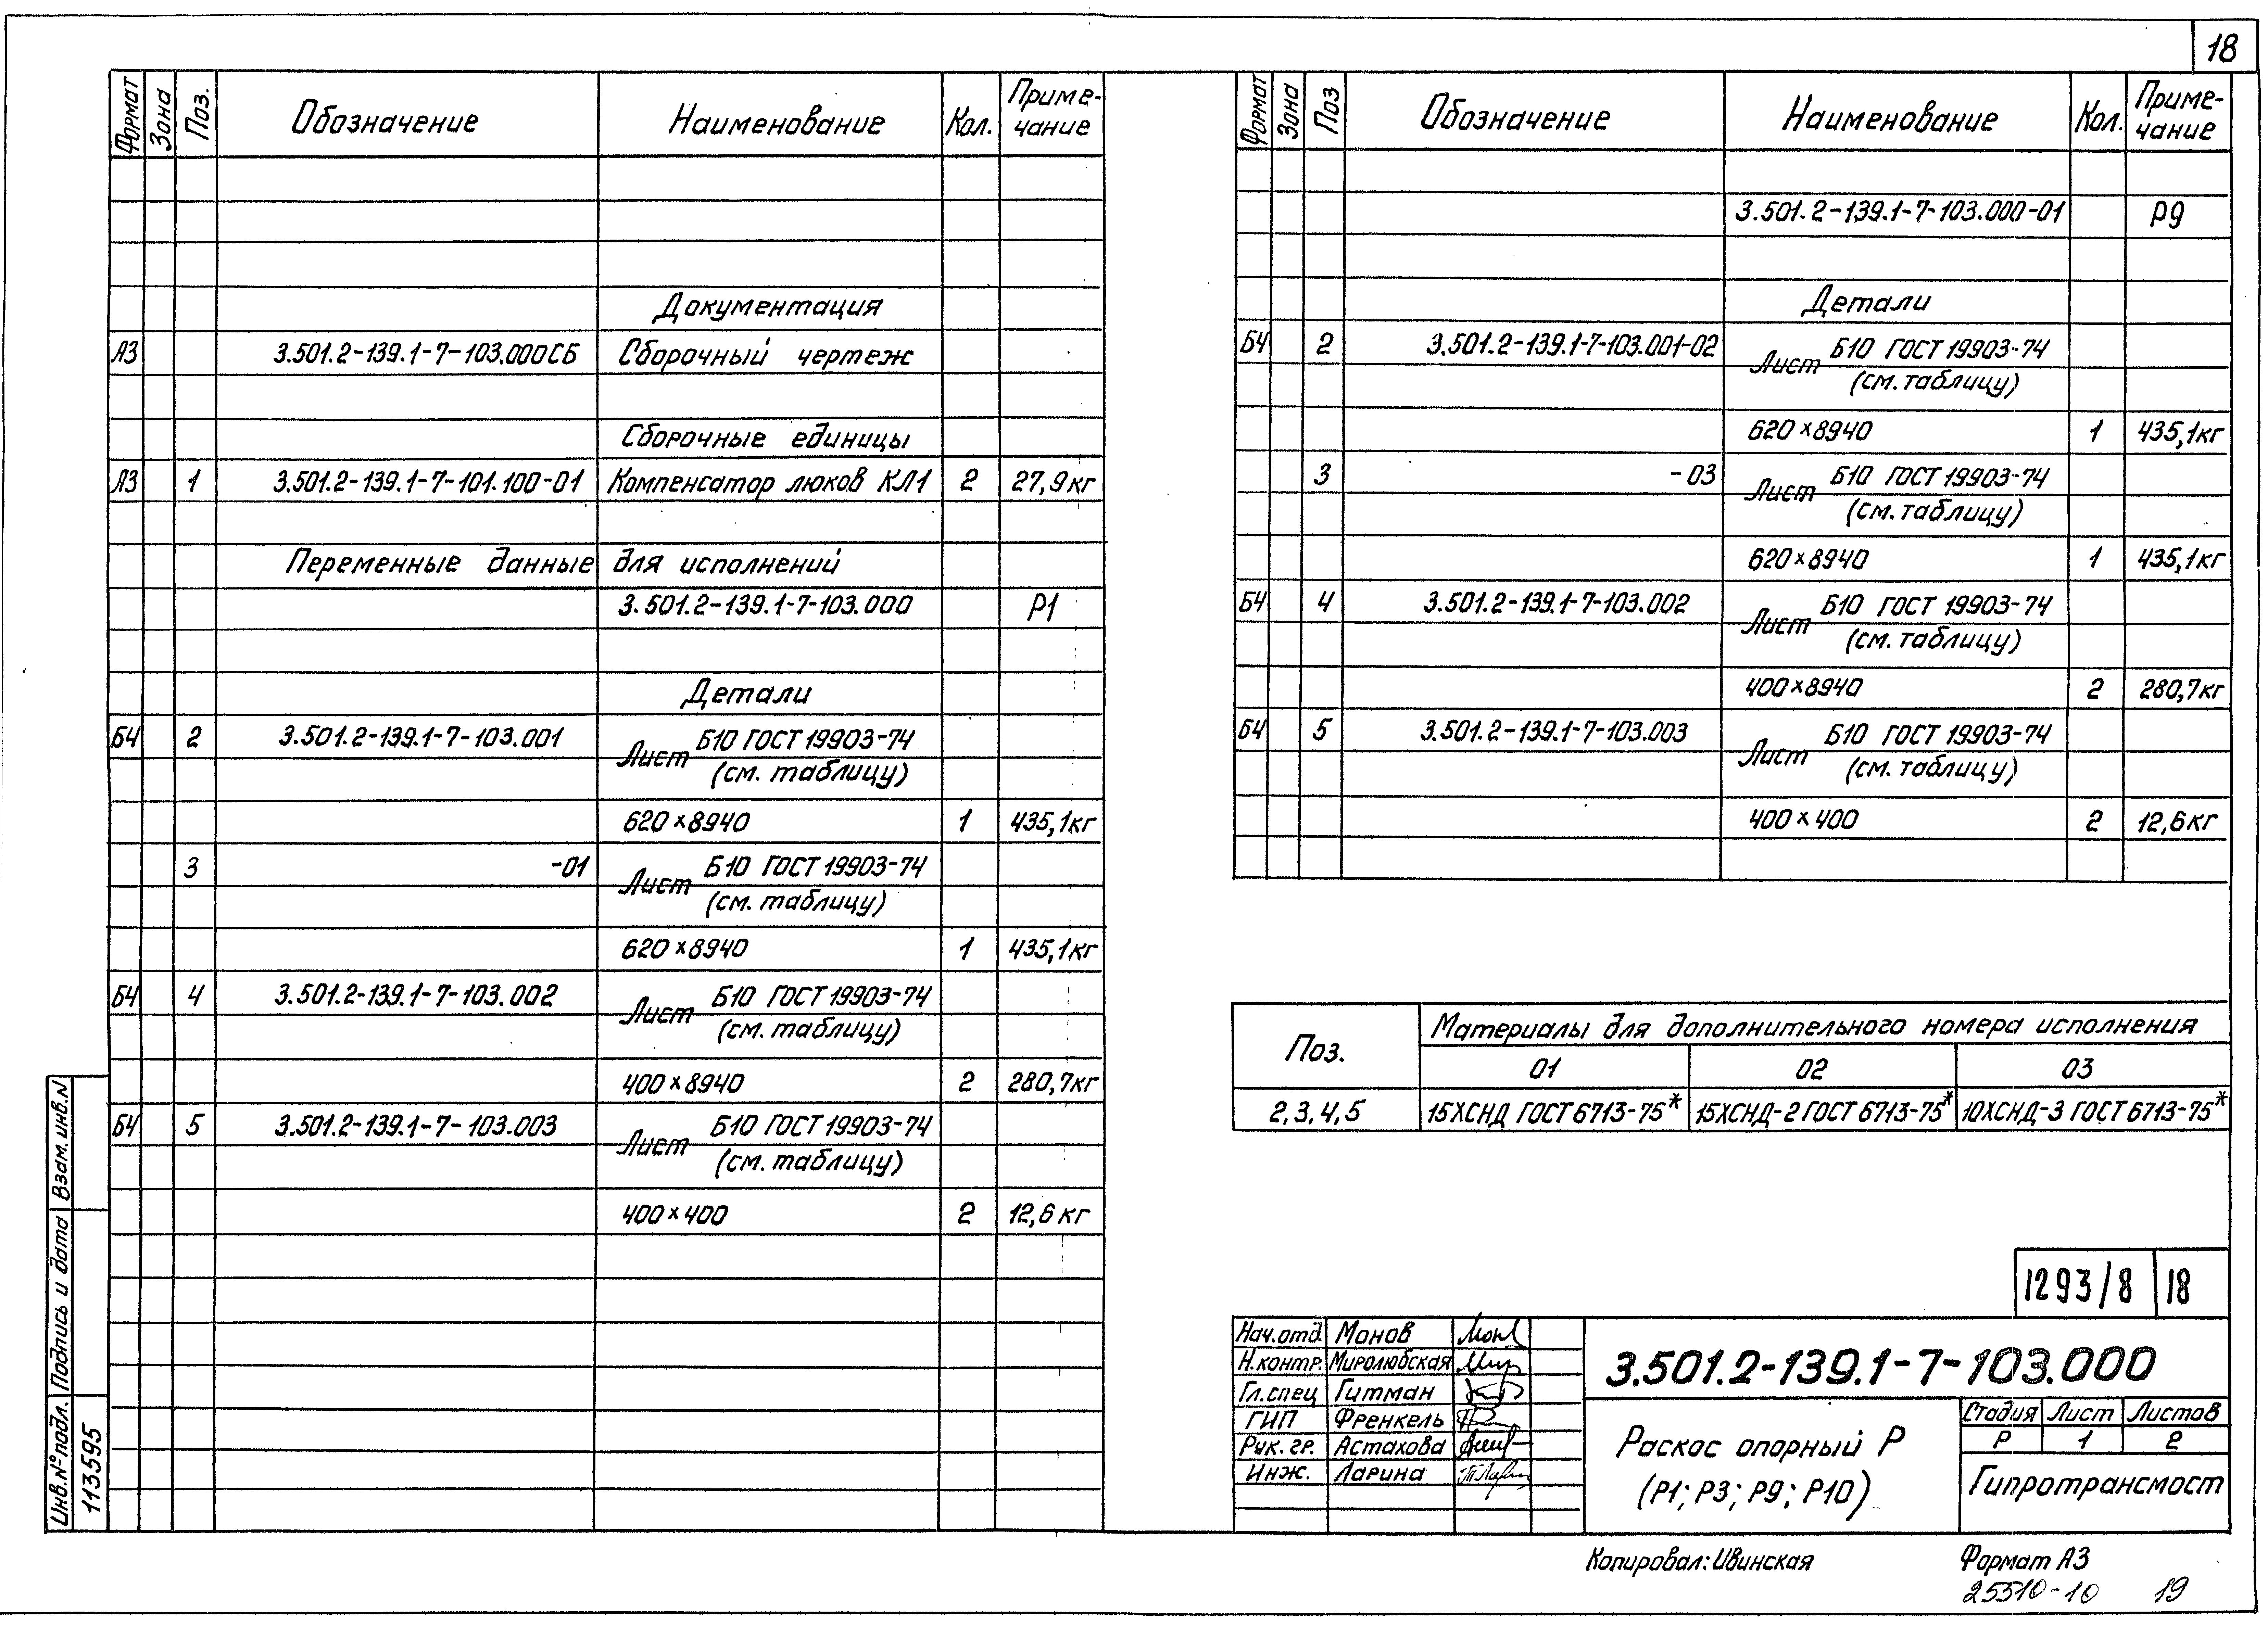 18
Формат Зона Поз. Обозначение Наименование Кол. Приме-чание
Документация
А3 3.501.2-139.1-7-103.000СБ Сборочный чертеж
Сборочные единицы
А3 1 3.501.2-139.1-7-101.100-01 Компенсатор люков КЛ1 2 27,9кг
Переменные данные для исполнений
3.501.2-139.1-7-103.000 Р1
Детали
БЧ 2 3.501.2-139.1-7-103.001 Лист Б10 ГОСТ 19903-74
(см. таблицу)
620×8940 1 435,1кг
3 -01 Лист Б10 ГОСТ 19903-74
(см. таблицу)
620×8940 1 435,1кг
БЧ 4 3.501.2-139.1-7-103.002 Лист Б10 ГОСТ 19903-74
(см. таблицу)
400×8940 2 280,7кг
БЧ 5 3.501.2-139.1-7-103.003 Лист Б10 ГОСТ 19903-74
(см. таблицу)
400×400 2 12,6 кг
Формат Зона Поз Обозначение Наименование Кол. Приме-чание
3.501.2-139.1-7-103.000-01 Р9
Детали
БЧ 2 3.501.2-139.1-7-103.001-02 Лист Б10 ГОСТ 19903-74
(см. таблицу)
620×8940 1 435,1кг
3 -03 Лист Б10 ГОСТ 19903-74
(см. таблицу)
620×8940 1 435,1кг
БЧ 4 3.501.2-139.1-7-103.002 Лист Б10 ГОСТ 19903-74
(см. таблицу)
400×8940 2 280,7кг
БЧ 5 3.501.2-139.1-7-103.003 Лист Б10 ГОСТ 19903-74
(см. таблицу)
400×400 2 12,6кг
Поз. Материалы для дополнительного номера исполнения
01 02 03
2,3,4,5 15ХСНД ГОСТ 6713-75* 15ХСНД-2 ГОСТ 6713-75* 10ХСНД-3 ГОСТ 6713-75*
1293/8 18
Нач.отд. Монов
Н.контр. Миролюбская
Гл.спец Гитман
ГИП Френкель
Рук. гр. Астахова
Инж. Ларина
3.501.2-139.1-7-103.000
Раскос опорный Р
(Р1; Р3; Р9; Р10)
Стадия Лист Листов
Р 1 2
Гипротрансмост
Инв.№ подл. Подпись и дата Взам.инв.N
113595
Копировал: Ивинская Формат А3
25510-10 19